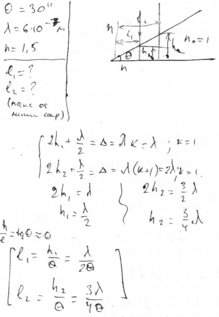 θ = 30''
λ = 6·10⁻⁷ м
n = 1,5
l₁ = ?
l₂ = ?
n
l₁
h₁
h₂
θ
n₀ = 1
n
2h₁ + λ/2 = Δ = λk = λ ; k=1
2h₂ + λ/2 = Δ = λ(k+1) = 2λ; k=1.
2h₁ = λ/2
h₁ = λ/2
2h₂ = 3/2 λ
h₂ = 3/4 λ
h/l = tgθ ≈ θ
l₁ = h₁/θ = λ/2θ
l₂ = h₂/θ = 3λ/4θ